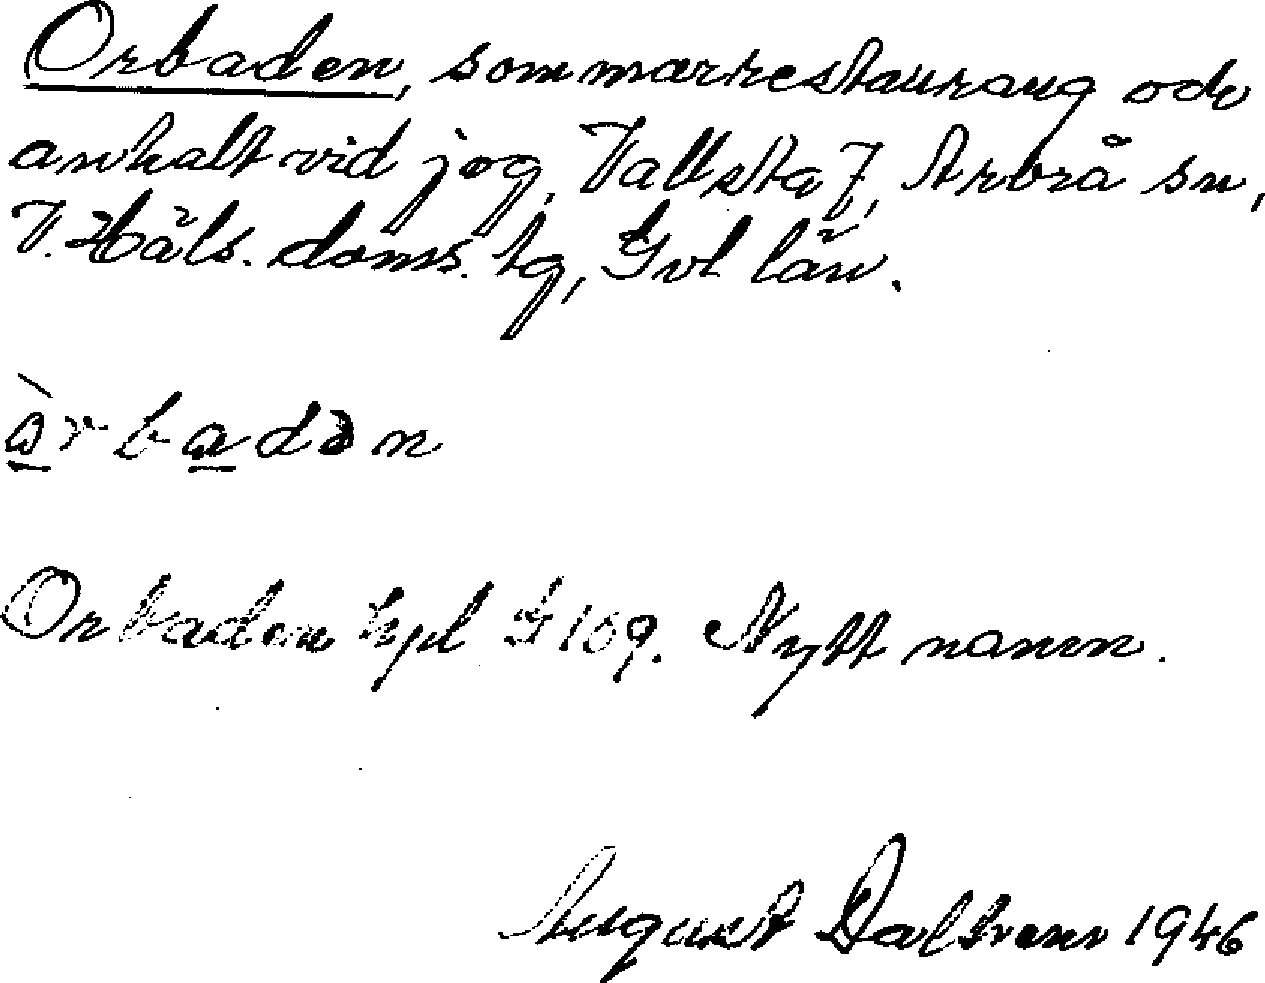 Orbaden, sommarrestaurang och
anhalt vid jvg, Vallsta 7, Arbrå sn,
V. Häls. doms. tg, Gvl län.
òrbadən
Orbaden hpl G 109. Nytt namn.
August 1946